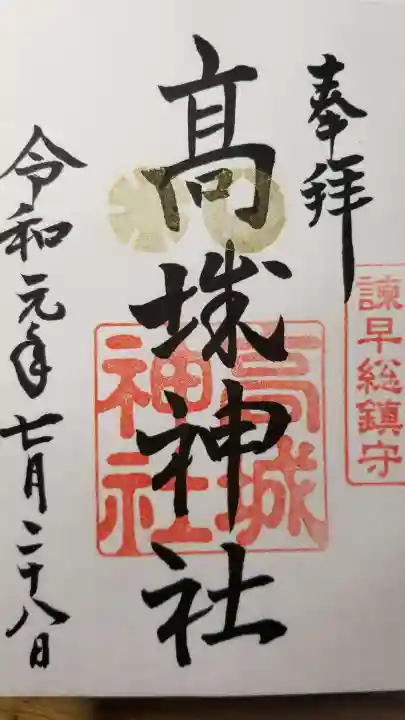 奉拝
諫早総鎮守
髙城神社
高城
神社
令和元年七月二十八日